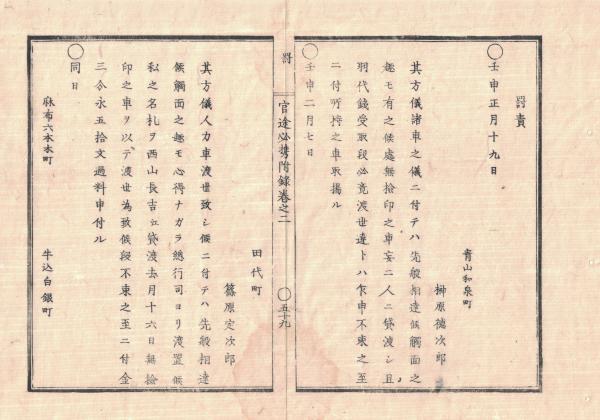 罰責
〇壬申正月十九日
青山和泉町
榊原徳次郎
其方儀諸車之儀ニ付テハ先般相達候觸面之
趣モ有之候處無撿印之車妄ニ人ニ貸渡シ且
羽代錢受取段必竟渡世違トハ乍申不束之至
ニ付所持之車取揚ル
〇壬申二月七日
罰
官途必携附錄卷之二
〇五十九
田代町
篠原定次郎
其方儀人力車渡世致シ候ニ付テハ先般相達
候觸面之趣モ心得ナガラ總行司ヨリ渡置候
私之名札ヲ西山長吉江貸渡去月十六日無撿
印之車ヲ以テ渡世為致候段不束之至ニ付金
三分永五拾文過料申付ル
〇同日
麻布六本木町
牛込白銀町